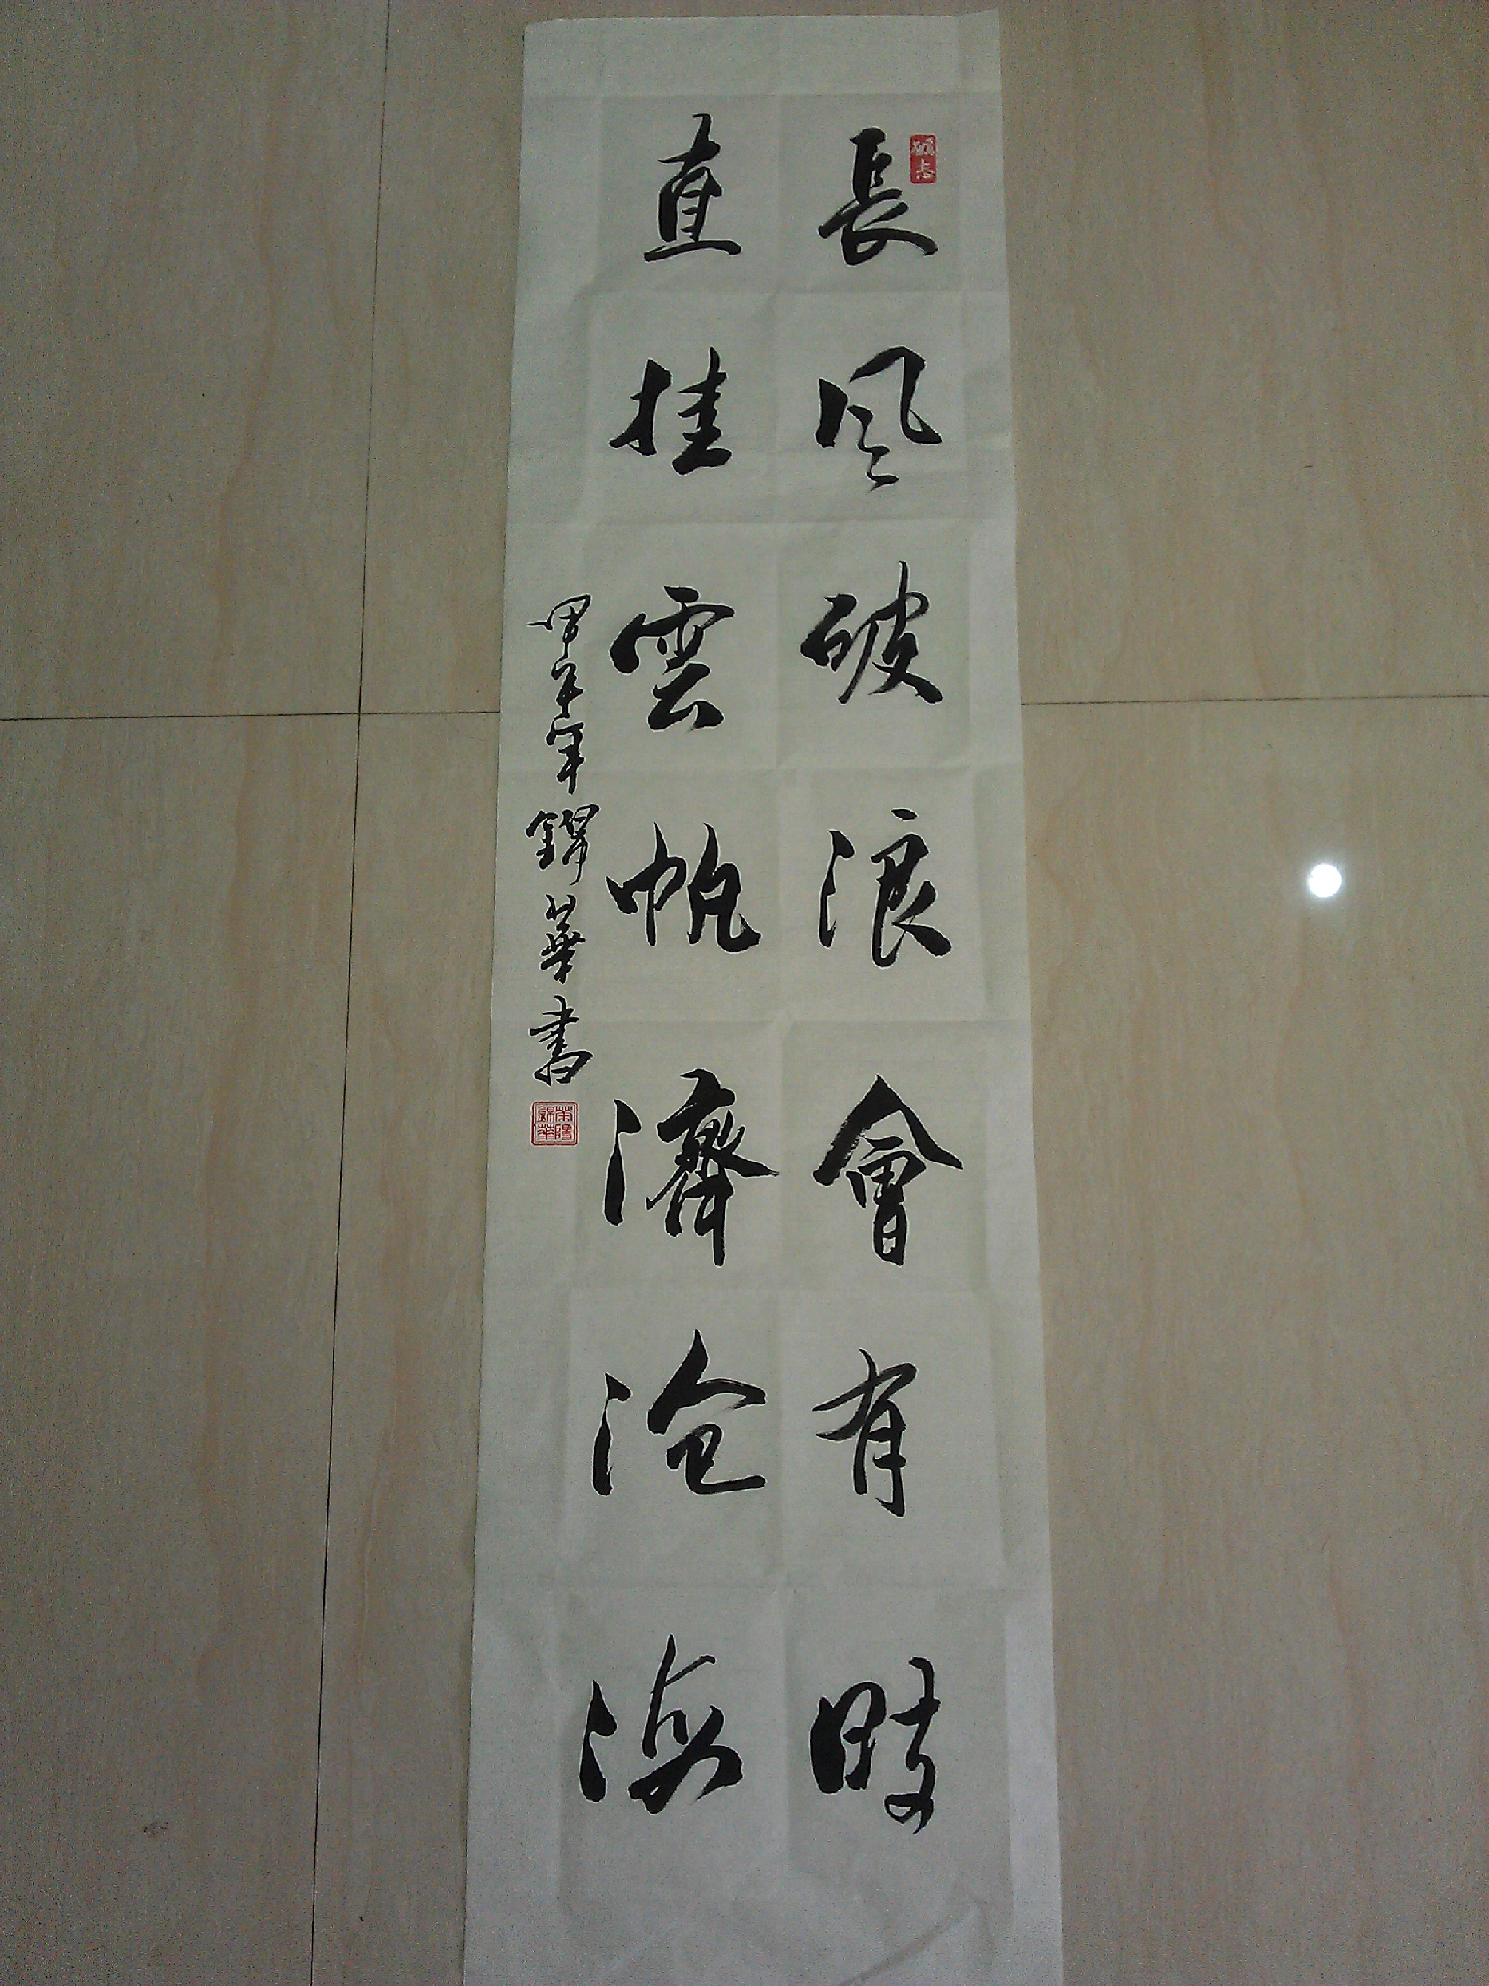 長風破浪會有時
直挂雲帆濟滄海
甲午年錦華書